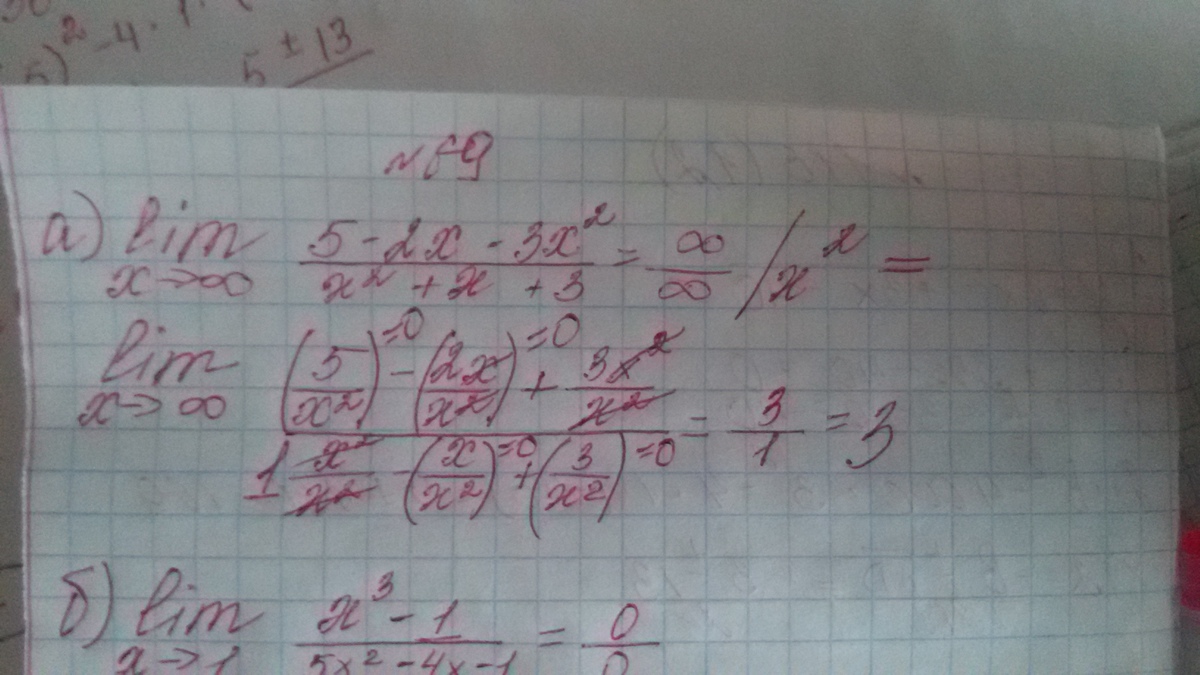 5)² - 4 · 1 · (
5 ± 13
№69
а) lim x→∞ (5 - 2x - 3x²)/(x² + x + 3) = ∞/∞ /x² =
lim x→∞ ((5/x²)=0 - (2x/x²)=0 + 3x²/x²)/(1 x²/x² - (x/x²)=0 + (3/x²)=0) = 3/1 = 3
б) lim x→1 (x³ - 1)/(5x² - 4x - 1) = 0/0